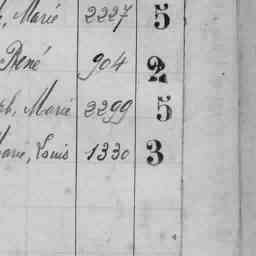 , Marie 2227 5
René 904 2
ph, Marie 2299 5
Marie, Louis 1330 3